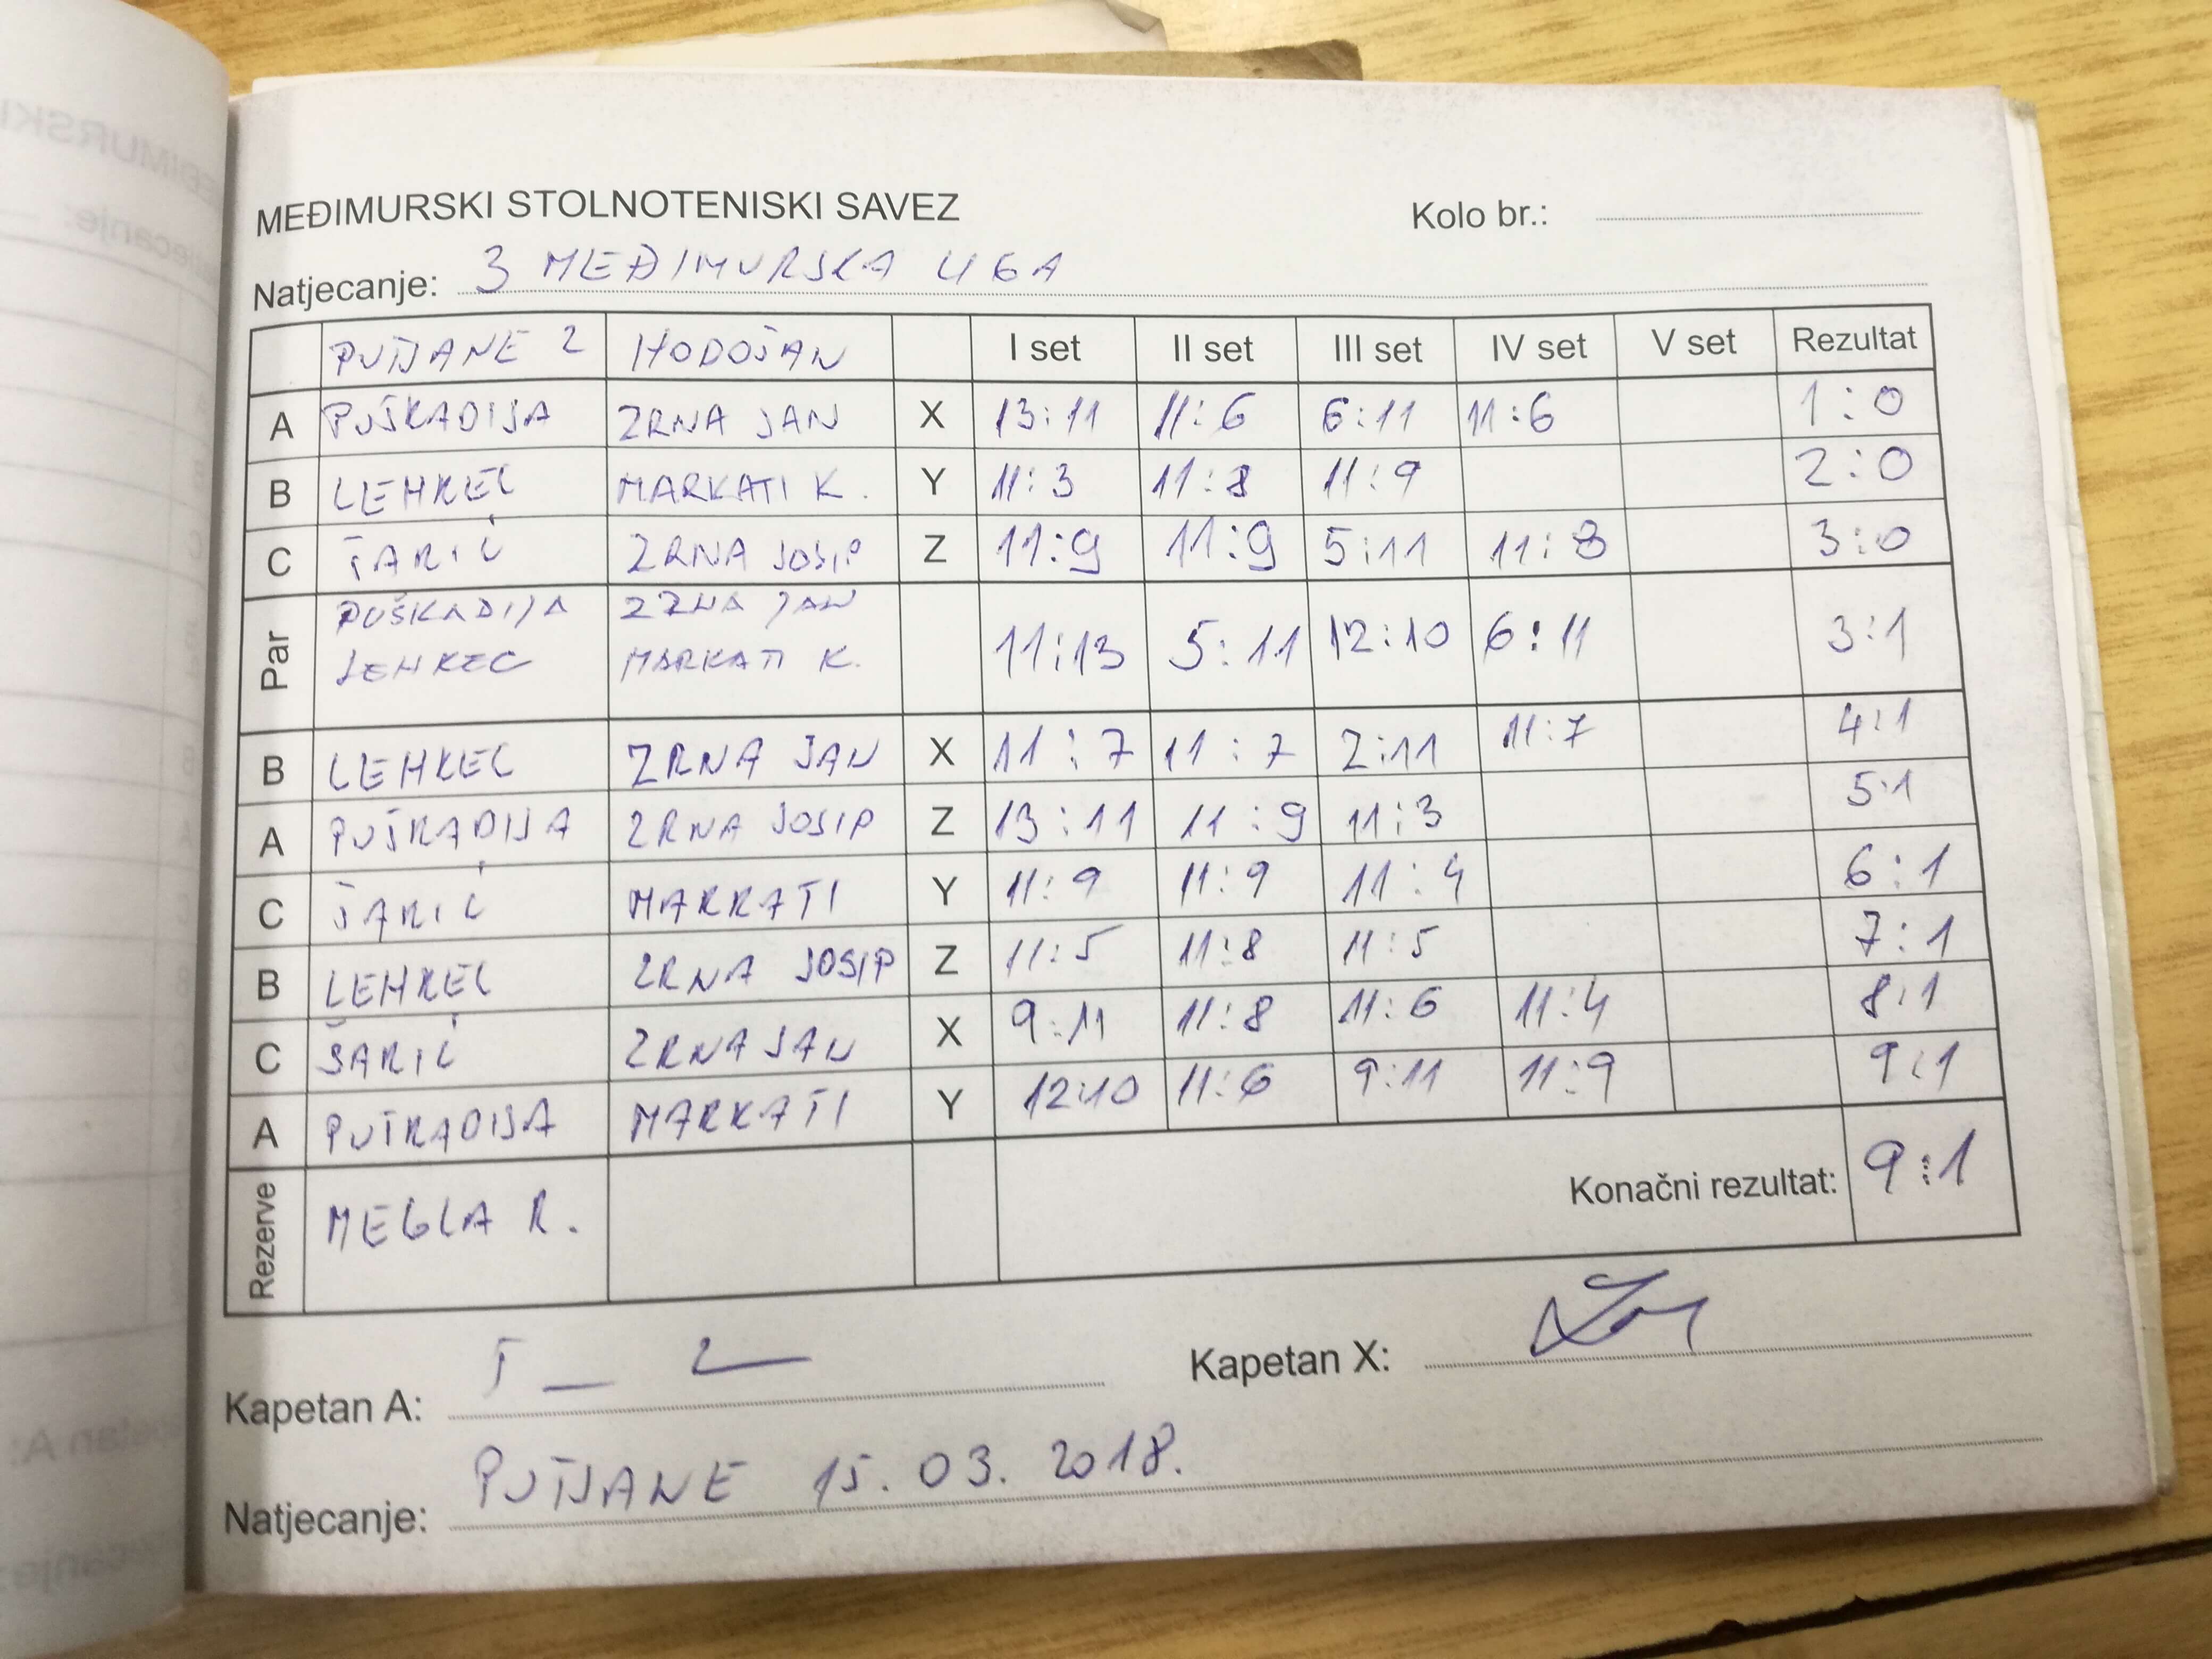 MEĐIMURSKI STOLNOTENISKI SAVEZ
Kolo br.:
Natjecanje: 3 MEĐIMURSKA LIGA
PUŠĆANE 2 HODOŠAN I set II set III set IV set V set Rezultat
A PUŠKADIJA ZRNA JAN X 13:11 11:6 6:11 11:6 1:0
B LEHKEC MARKATI K. Y 11:3 11:8 11:9 2:0
C ŠARIĆ ZRNA JOSIP Z 11:9 11:9 5:11 11:8 3:0
Par PUŠKADIJA ZRNA JAN 11:13 5:11 12:10 6:11 3:1
LEHKEC MARKATI K.
B LEHKEC ZRNA JAN X 11:7 11:7 2:11 11:7 4:1
A PUŠKADIJA ZRNA JOSIP Z 13:11 11:9 11:3 5:1
C ŠARIĆ MARKATI Y 11:9 11:9 11:4 6:1
B LEHKEC ZRNA JOSIP Z 11:5 11:8 11:5 7:1
C ŠARIĆ ZRNA JAN X 9:11 11:8 11:6 11:4 8:1
A PUŠKADIJA MARKATI Y 12:10 11:6 9:11 11:9 9:1
Rezerve MEGLA R. Konačni rezultat: 9:1
Kapetan A:
Kapetan X:
Natjecanje: 15.03.2018.